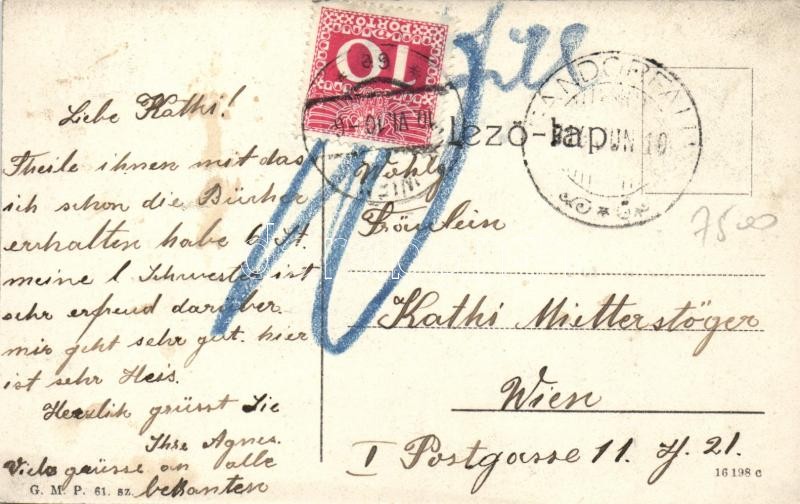 Liebe Kathi!
Theile ihnen mit das
ich schon die Bücher
erhalten habe 6 St.
meine l Schwester ist
sehr erfreud darüber.
mir geht sehr gut. hier
ist sehr Heis.
Herzlich grüsst Sie
Ihre Agnes.
Viele grüsse an alle
bekanten
G. M. P. 61. sz.
PORTO
10
WIEN
lező-lap
JUN 10
7500
Wohlg
Fräulein
Kathi Mitterstöger
Wien
I Postgasse 11. H. 21.
16198 c